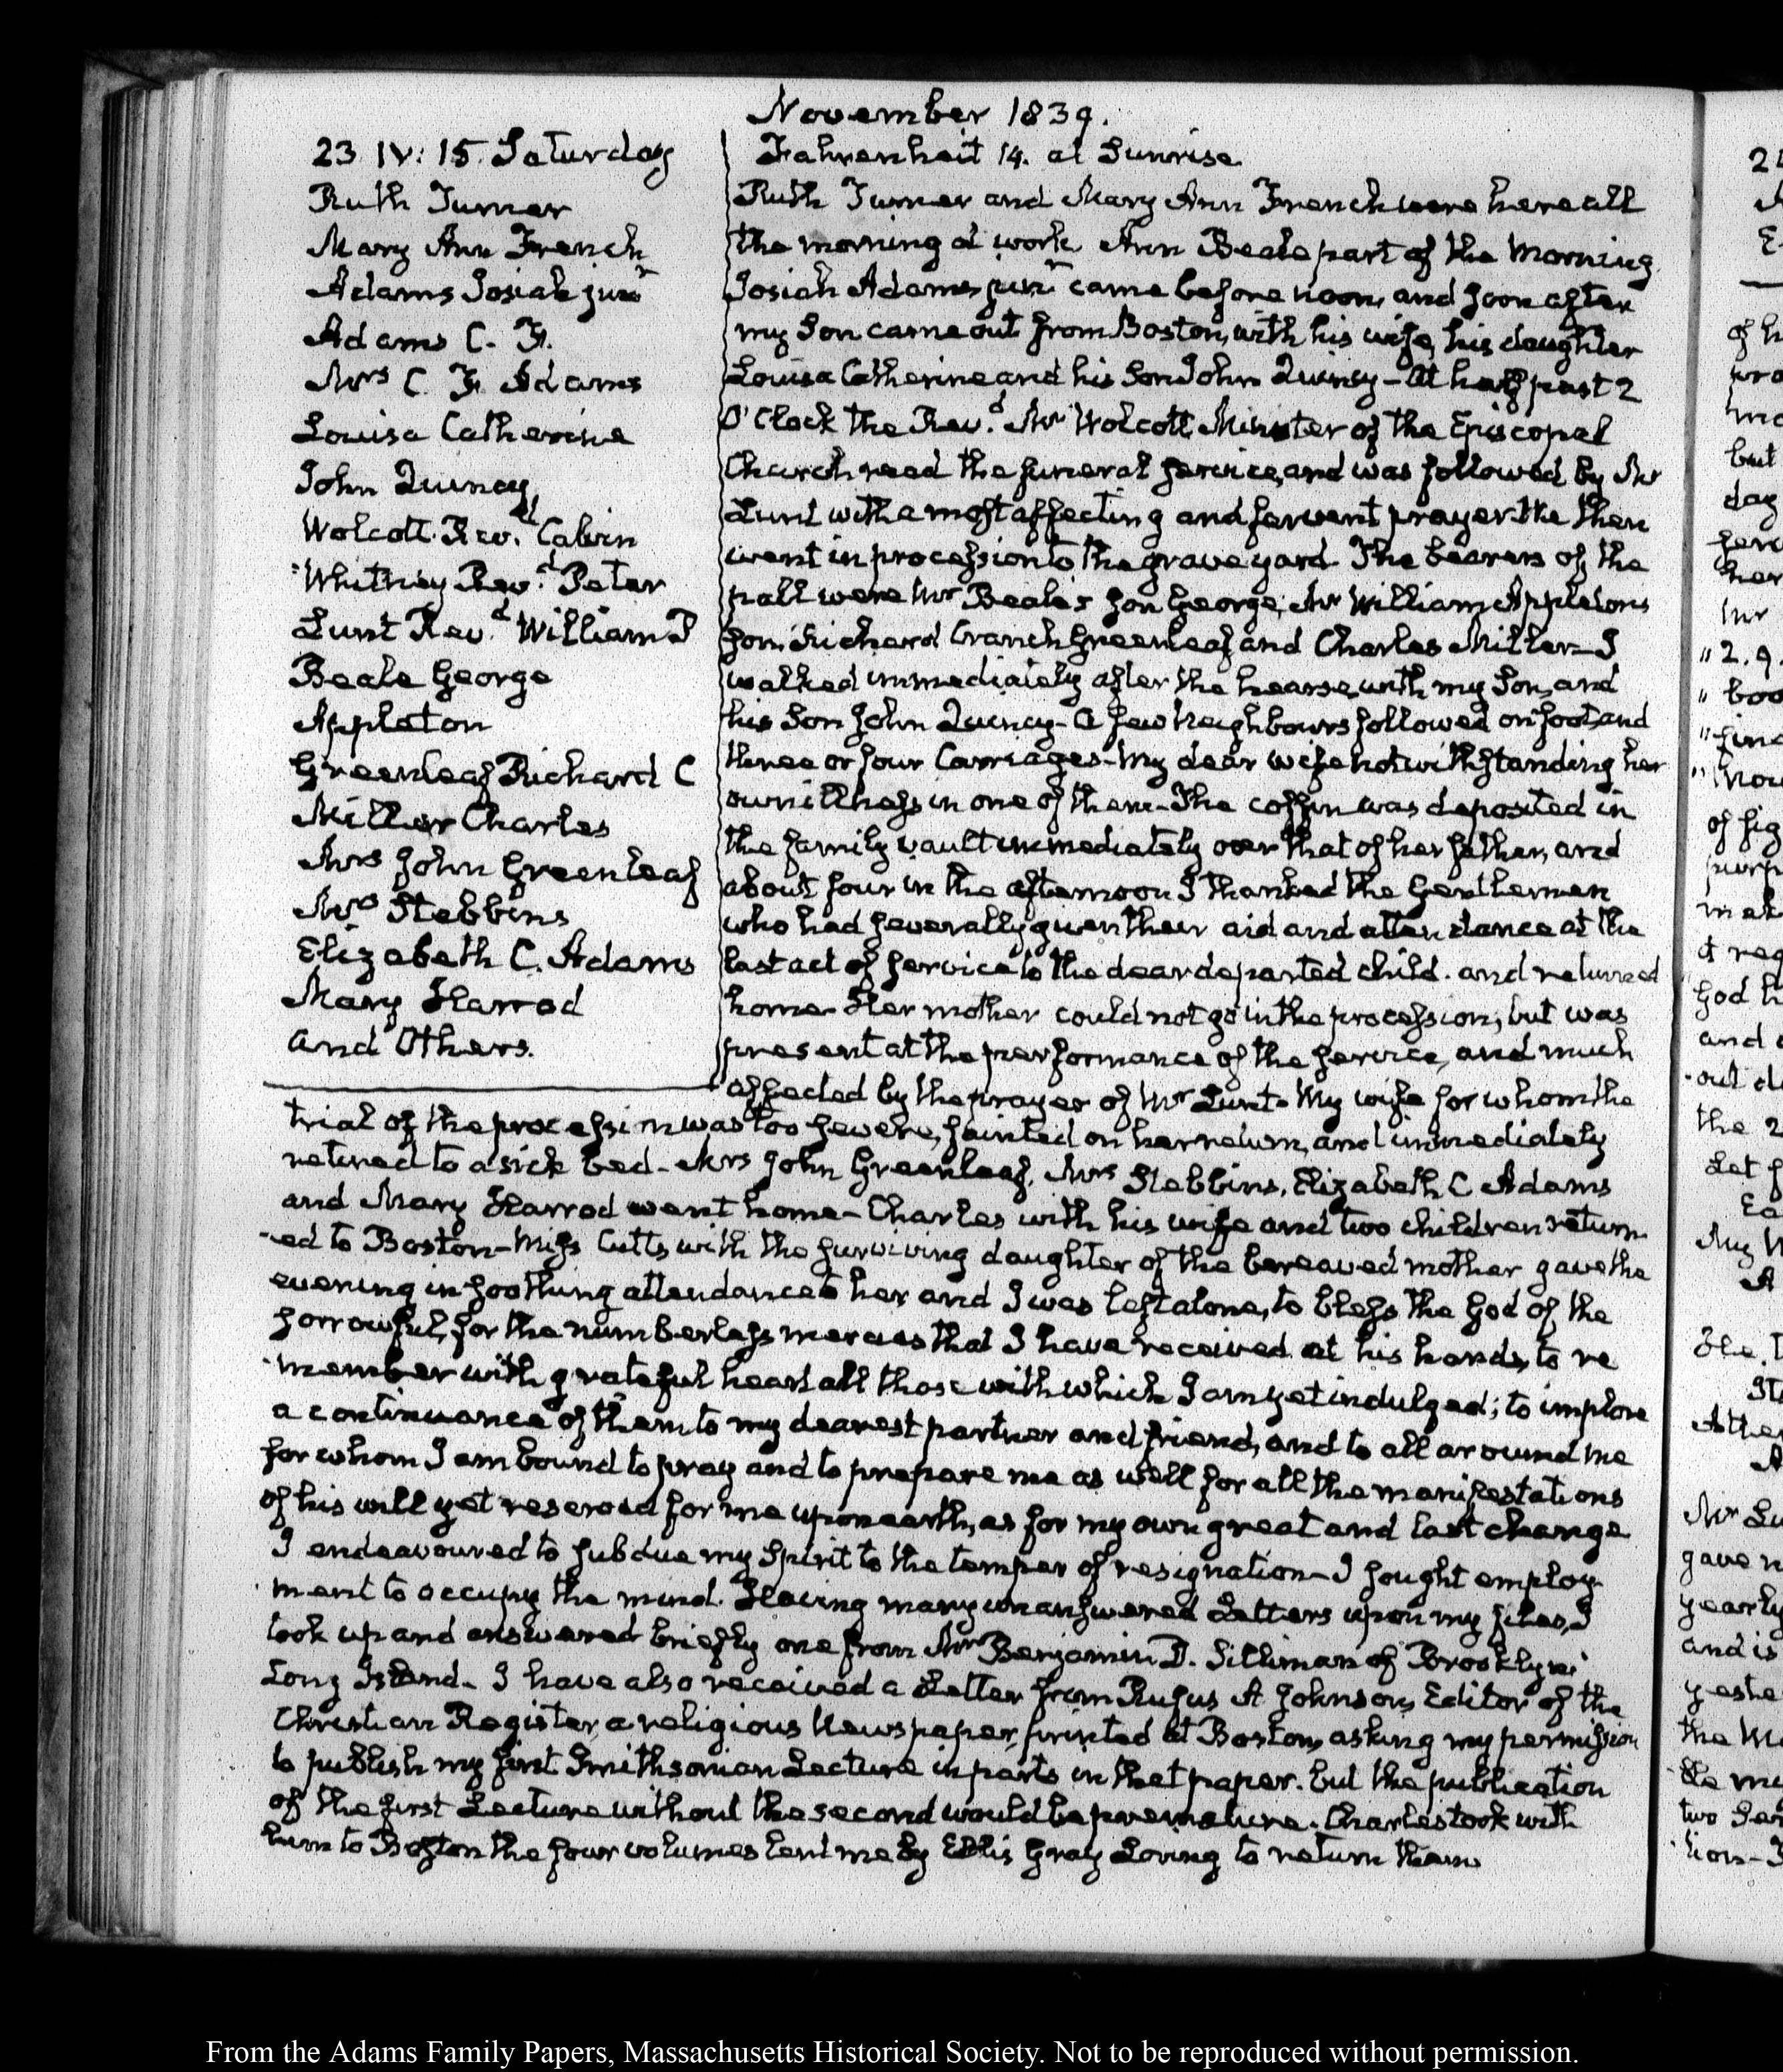 November 1839.
23 IV: 15. Saturday
Ruth Turner
Mary Ann French
Adams Josiah junr
Adams C. F.
Mrs C. F. Adams
Louisa Catherine
John Quincy
Wolcott Revd. Calvin
Whitney Revd. Peter
Lunt Revd. William P
Beale George
Appleton
Greenleaf Richard C
Miller Charles
Mrs John Greenleaf
Mrs Stebbins
Elizabeth C. Adams
Mary Harrod
and Others.
Fahrenheit 14. at Sunrise.
Ruth Turner and Mary Ann French were here all
the morning at work Ann Beale part of the Morning
Josiah Adams junr came before noon, and soon after
my Son came out from Boston, with his wife, his daughter
Louisa Catherine and his Son John Quincy – At half past 2
O'Clock the Revd. Mr Wolcott Minister of the Episcopal
Church read the funeral service, and was followed by Mr
Lunt with a most affecting and fervent prayer. We then
went in procession to the grave yard. The bearers of the
pall were Mr Beale's son George, Mr William Appleton's
son, Richard Cranch Greenleaf and Charles Miller – I
walked immediately after the hearse, with my Son, and
his Son John Quincy – A few Neighbours followed on foot, and
three or four Carriages – My dear wife notwithstanding her
own illness in one of them – The coffin was deposited in
the family vault immediately over that of her father, and
about four in the afternoon I thanked the Gentlemen
who had severally given their aid and attendance at the
last act of service to the dear departed child. and returned
home – Her mother could not go in the procession; but was
present at the performance of the service, and much
affected by the prayer of Mr Lunt – My wife for whom the
trial of the procession was too severe, fainted on her return, and immediately
retired to a sick bed – Mrs John Greenleaf, Mrs Stebbins, Elizabeth C Adams
and Mary Harrod went home – Charles with his wife and two children return
-ed to Boston – Miss Cutts with the surviving daughter of the bereaved mother gave the
evening in soothing attendance to her and I was left alone, to bless the God of the
sorrowful, for the numberless mercies that I have received at his hands, to re
-member with grateful heart all those with which I am yet indulged; to implore
a continuance of them to my dearest partner and friend, and to all around me
for whom I am bound to pray and to prepare me as well for all the manifestations
of his will yet reserved for me upon earth, as for my own great and last change
I endeavoured to subdue my Spirit to the temper of resignation – I sought employ
-ment to occupy the mind. Having many unanswered Letters upon my files, I
took up and answered briefly one from Mr Benjamin D. Silliman of Brooklyn
Long Island – I have also received a Letter from Rufus A Johnson, Editor of the
Christian Register, a religious Newspaper, printed at Boston, asking my permission
to publish my first Smithsonian Lecture in parts in that paper. but the publication
of the first Lecture without the second would be premature. Charles took with
him to Boston the four volumes lent me by Ellis Gray Loring to return them
From the Adams Family Papers, Massachusetts Historical Society. Not to be reproduced without permission.